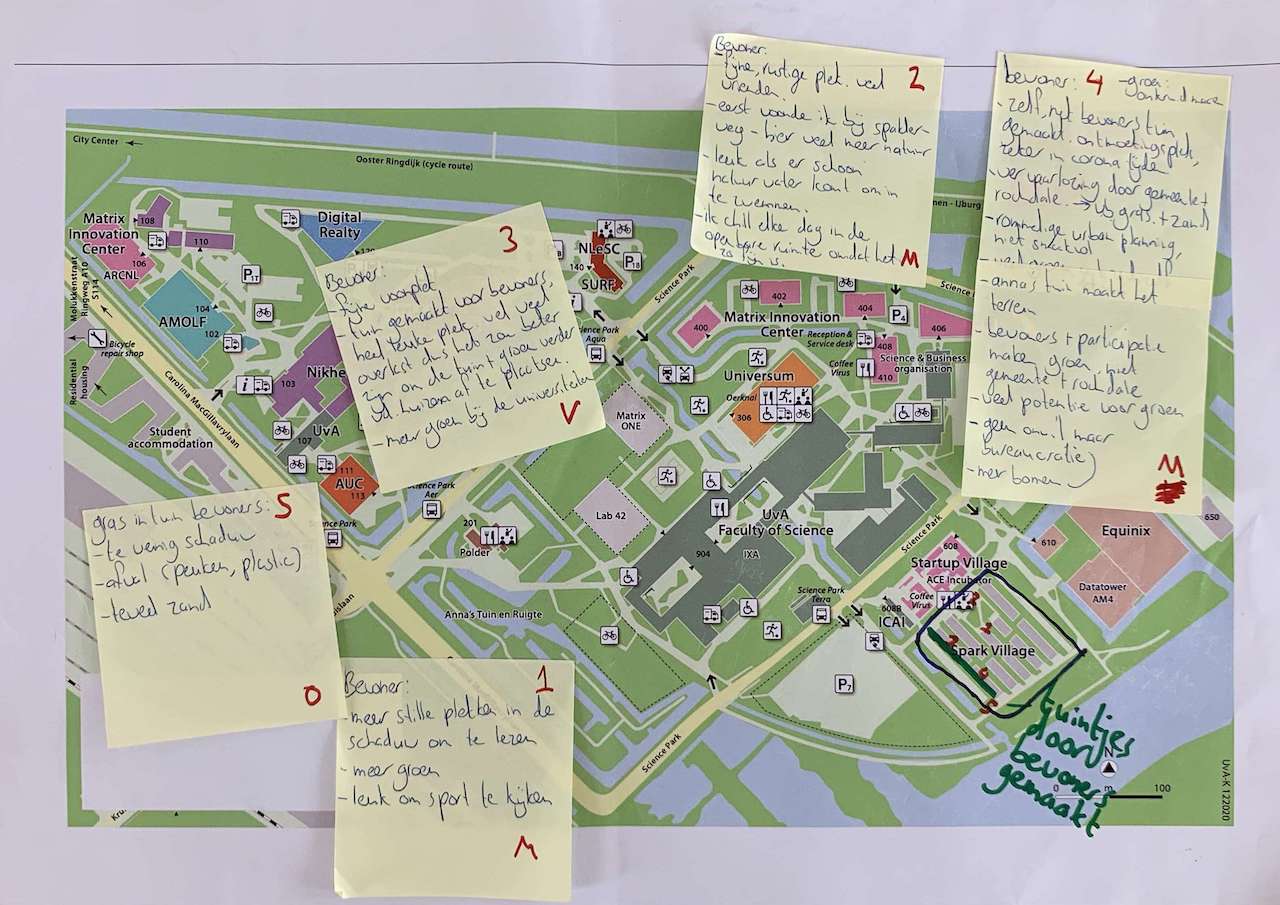 Bewoner:
2
- fijne, rustige plek. veel
vrienden.
- eerst woonde ik bij spaklerweg - hier veel meer natuur
- leuk als er schoon
natuur water komt om in
te zwemmen.
- ik chill elke dag in de
openbare ruimte omdat het
zo fijn is.
M
bewoner: 4
- groen:
- zelf, met bewoners tuin
gemaakt. ontmoetingsplek,
zeker in corona tijden
- verwaarlozing door gemeente +
rochdale. → vb gras. + zand
- rommelige urban planning,
niet smaakvol
- anna's tuin maakt het
- bewoners + participatie
maken groen, niet
gemeente + rochdale
- veel potentie voor groen
- geen onwil maar
bureaucratie)
- meer bomen
M
3
Bewoner:
fijne woonplek
tuin gemaakt voor bewoners,
heel leuke plek. wel veel
overlast dus het zou beter
zijn om de tuin + groen verder
vd huizen af te plaatsen.
- meer groen bij de universiteiten
V
gras in tuin bewoners: 5
- te weinig schaduw
- afval (peuken, plastic)
- teveel zand
O
Bewoner:
1
- meer stille plekken in de
schaduw om te lezen
- meer groen
- leuk om sport te kijken
M
City Center
Ooster Ringdijk (cycle route)
Matrix
Innovation
Center
108
110
106
ARCNL
Digital
Realty
P17
Molukkenstraat
Ringweg A10
S114
AMOLF
104
102
Bicycle
repair shop
Residential
housing
Carolina MacGillavrylaan
Student
accommodation
103
Nikhe
UvA
107
111
AUC
113
Science Park
Aer
NLeSC
140
P18
SURF
Science Park
Science Park
Aqua
men - IJburg
Matrix Innovation
Center
400
402
404
406
P4
Reception &
Service desk
408
410
Coffee
Virus
Science & Business
organisation
Universum
Oerknal
306
Matrix
ONE
Lab 42
UvA
Faculty of Science
904
IXA
201
Polder
Anna's Tuin en Ruigte
Science Park
Science Park
Terra
Startup Village
608
ACE Incubator
Coffee
Virus
608B
ICAI
Spark Village
610
Equinix
650
Datatower
AM4
P7
Science Park
tuintjes
door
bewoners
gemaakt
N
0
m
100
UvA-K 122020